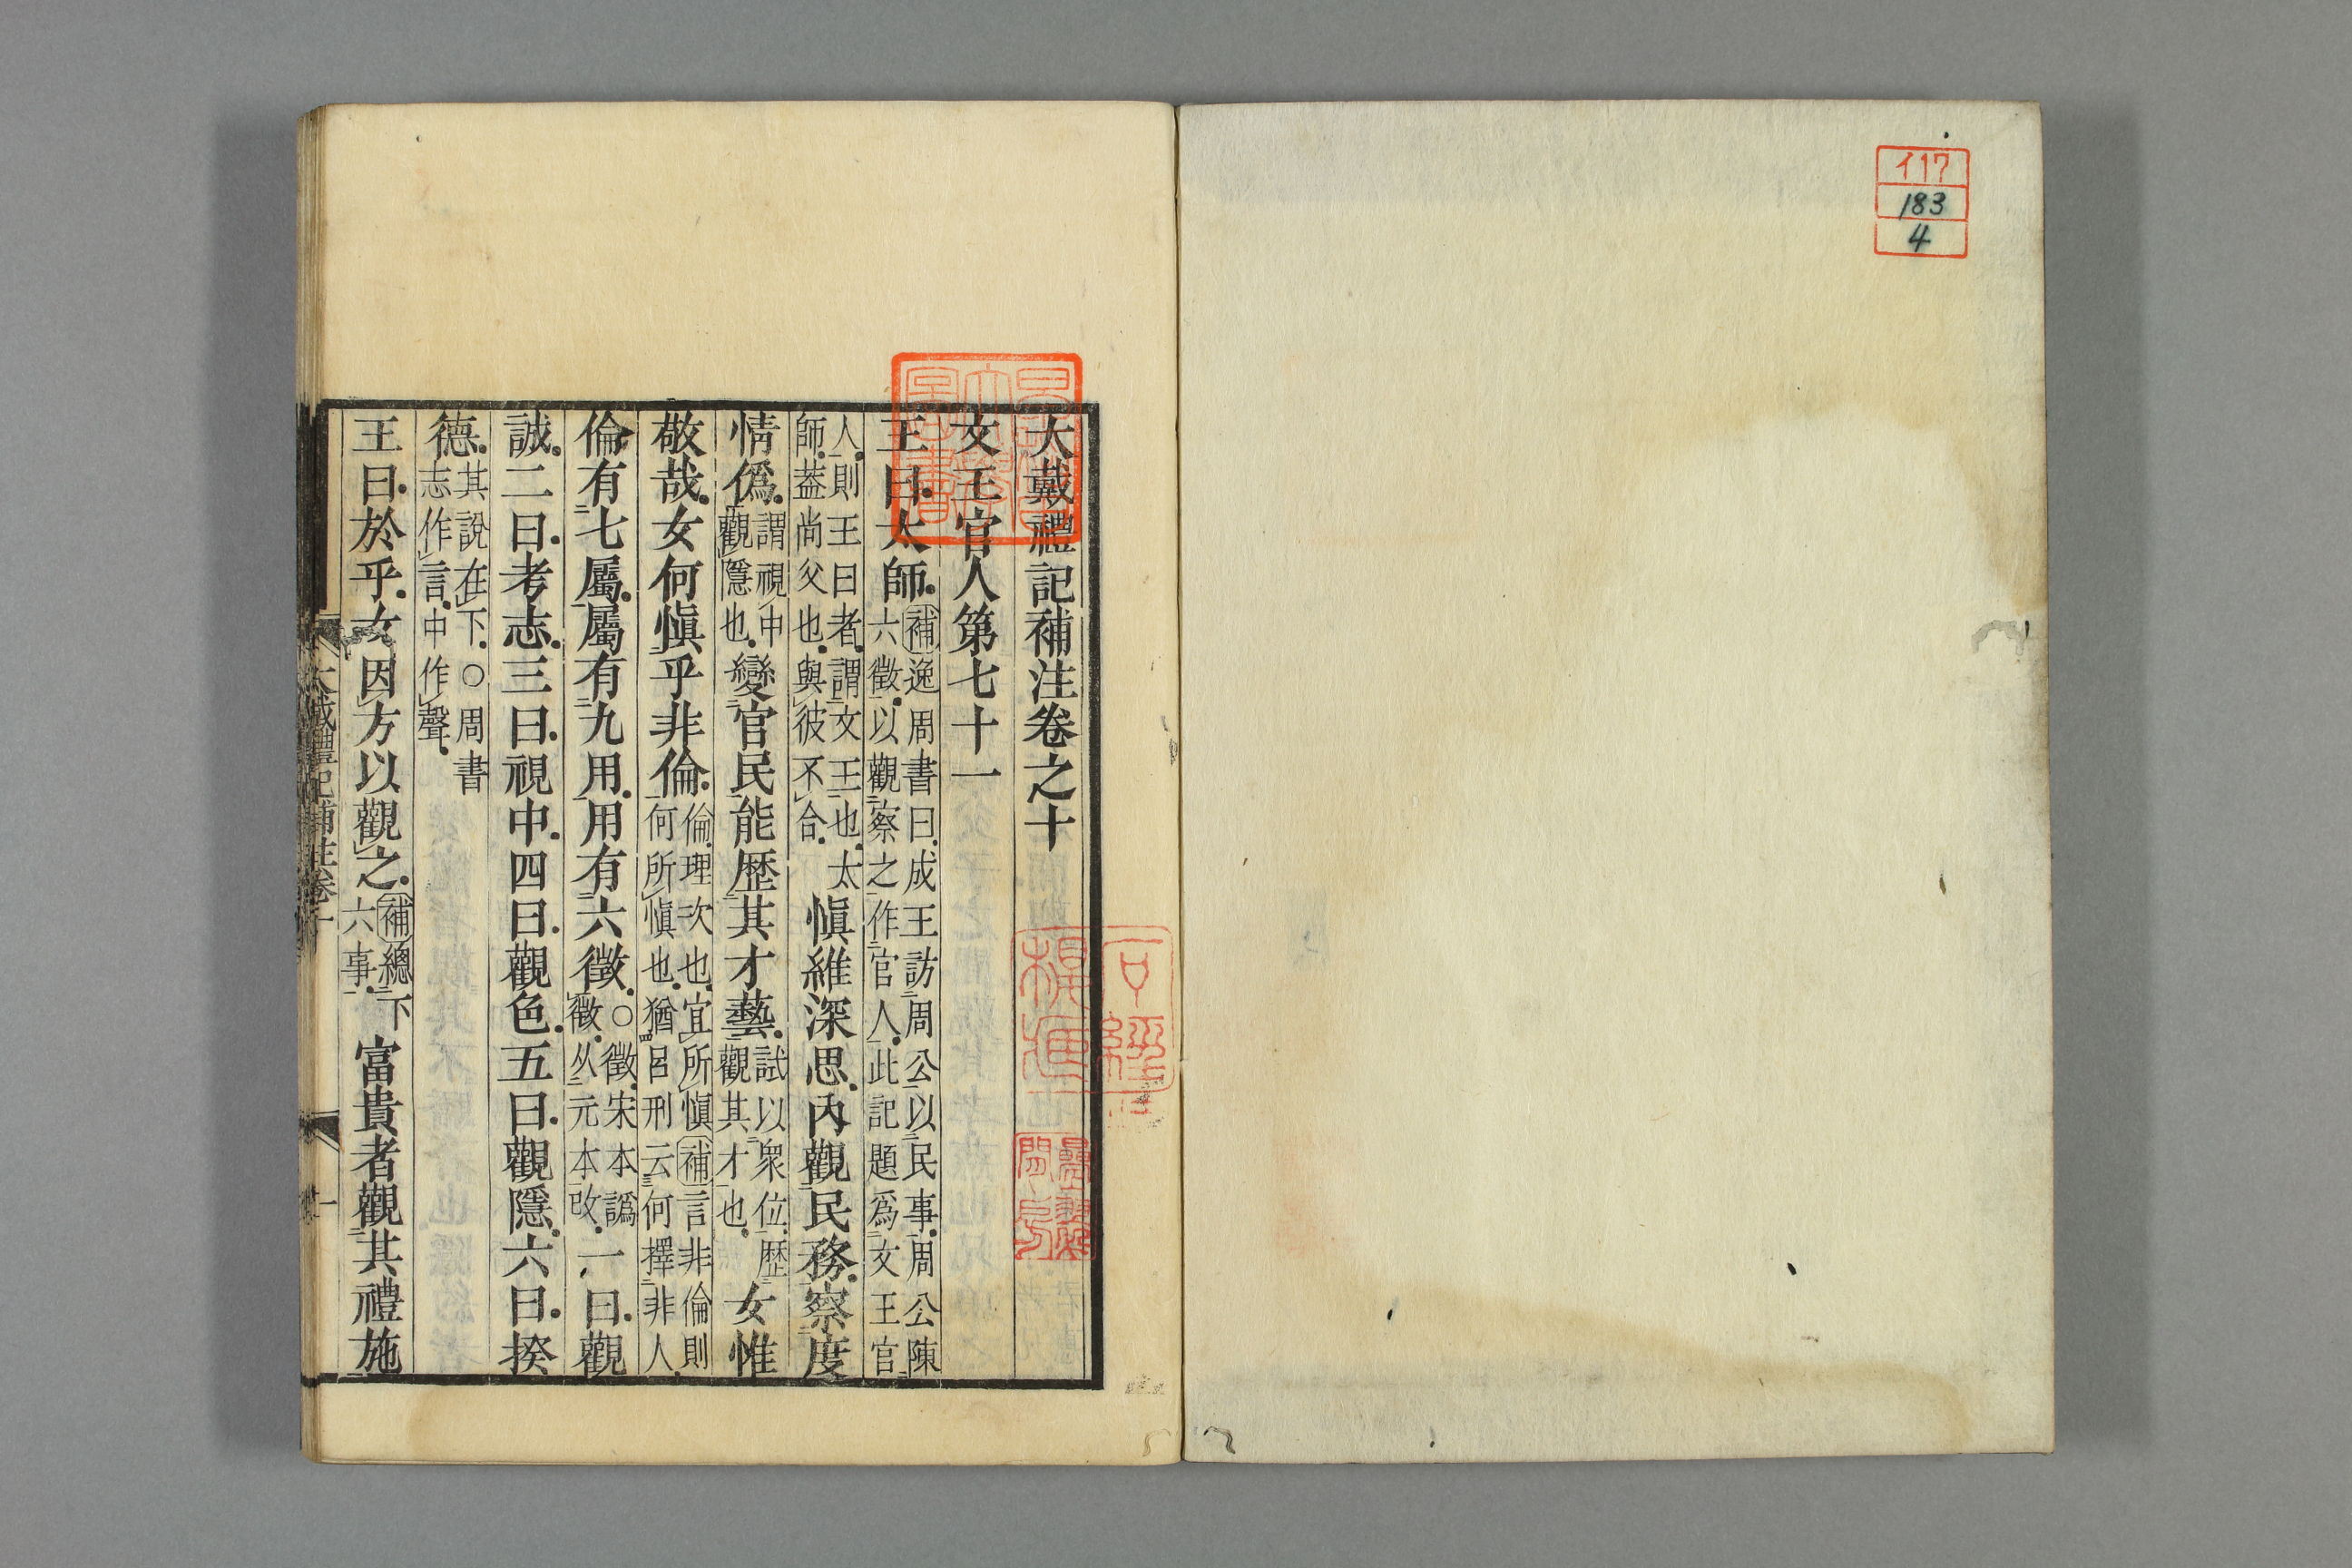 イ17
183
4
大戴禮記補注卷之十
文王官人第七十一
王曰太師補逸周書曰成王訪周公以民事周公陳
六徵以觀察之作官人此記題爲文王官
人則王曰者謂文王也太
師葢尚父也與彼不合愼維深思內觀民務察度
情僞謂視中
觀隱也變官民能歷其才藝試以衆位歷
觀其才也女惟
敬哉女何愼乎非倫倫理次也宜所愼補言非倫則
何所愼也猶呂刑云何擇非人
倫有七屬屬有九用用有六徵○徵宋本譌
徵从元本改一曰觀
誠二曰考志三曰視中四曰觀色五曰觀隱六曰揆
德其說在下○周書
志作言中作聲
王曰於乎女因方以觀之補總下
六事富貴者觀其禮施
大戴禮記補注卷十
一